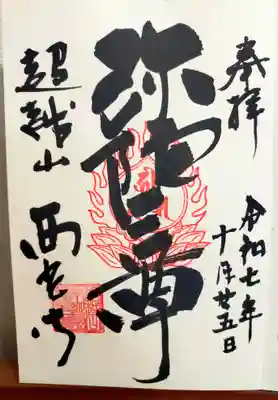 奉拝
令和七年
十月廿五日
弥陀三尊
超越山
西光寺